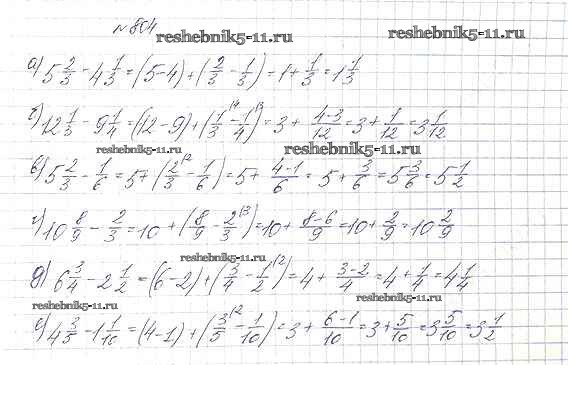 №804
reshebnik5-11.ru
reshebnik5-11.ru
а) 5 2/3 - 4 1/3 = (5-4) + (2/3 - 1/3) = 1 + 1/3 = 1 1/3
б) 12 1/3 - 9 1/4 = (12-9) + (1/3 |4 - 1/4 |3) = 3 + (4-3)/12 = 3 + 1/12 = 3 1/12
reshebnik5-11.ru
reshebnik5-11.ru
в) 5 2/3 - 1/6 = 5 + (2/3 |2 - 1/6) = 5 + (4-1)/6 = 5 + 3/6 = 5 3/6 = 5 1/2
г) 10 8/9 - 2/3 = 10 + (8/9 - 2/3 |3) = 10 + (8-6)/9 = 10 + 2/9 = 10 2/9
reshebnik5-11.ru
д) 6 3/4 - 2 1/2 = (6-2) + (3/4 - 1/2 |2) = 4 + (3-2)/4 = 4 + 1/4 = 4 1/4
reshebnik5-11.ru
reshebnik5-11.ru
е) 4 3/5 - 1 1/10 = (4-1) + (3/5 |2 - 1/10) = 3 + (6-1)/10 = 3 + 5/10 = 3 5/10 = 3 1/2